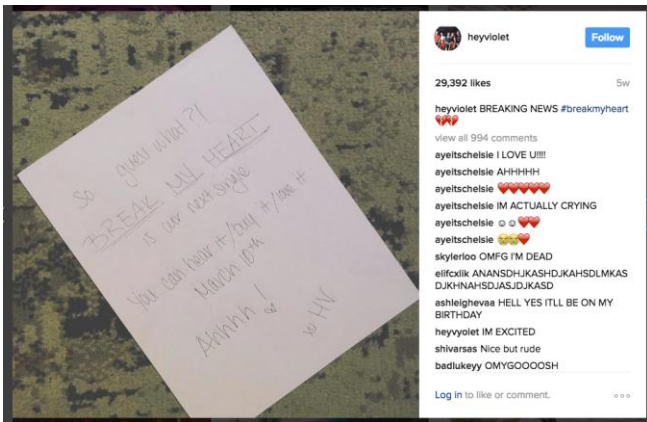 So guess what?!
BREAK MY HEART
is our next single
You can hear it/buy it/love it
March 10th
Ahhhh!
xo HV
heyviolet
Follow
29,392 likes
5w
heyviolet BREAKING NEWS #breakmyheart
💔💔💔
view all 994 comments
ayeitschelsie I LOVE U!!!!
ayeitschelsie AHHHHH
ayeitschelsie ❤️❤️❤️❤️❤️❤️
ayeitschelsie IM ACTUALLY CRYING
ayeitschelsie ☺☺❤️❤️
ayeitschelsie 😭😭❤️
skylerloo OMFG I'M DEAD
elifcxlik ANANSDHJKASHDJKAHSDLMKAS
DJKHNAHSDJASJDJKASD
ashleighevaa HELL YES ITLL BE ON MY
BIRTHDAY
heyvyolet IM EXCITED
shivarsas Nice but rude
badlukeyy OMYGOOOOSH
Log in to like or comment.